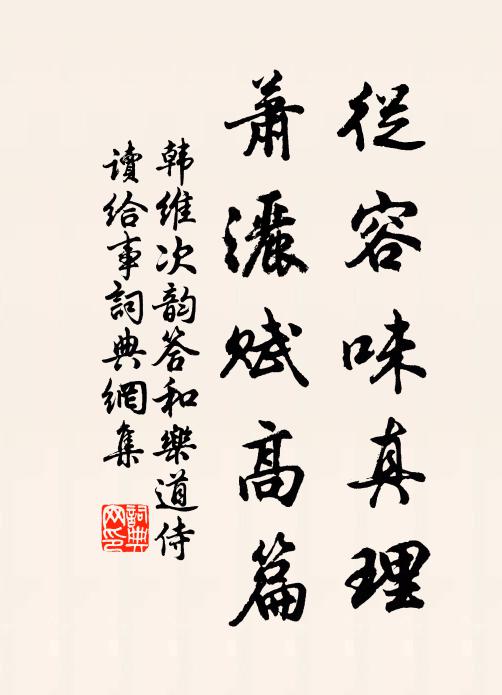 從容味真理
蕭灑賦高篇
韩維次韵答和樂道侍
讀给事詞典網集
詞典网印